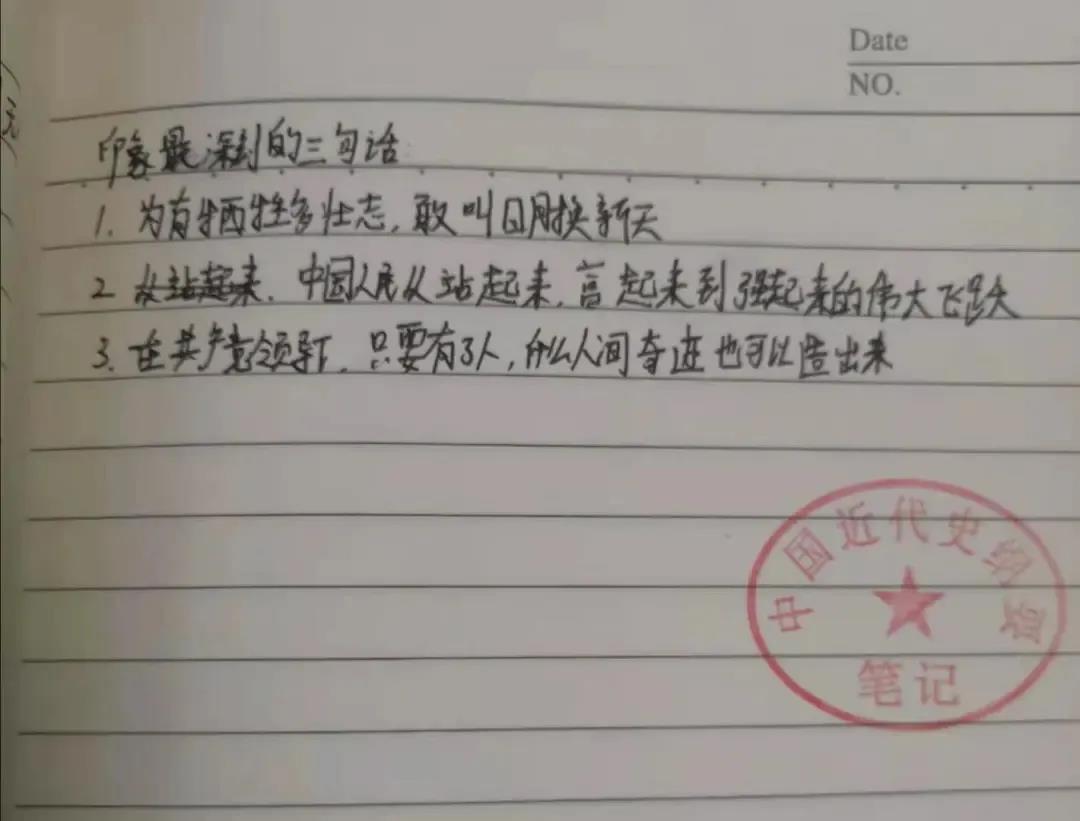 Date
NO.
印象最深刻的三句话
1. 为有牺牲多壮志，敢叫日月换新天
2 从站起来. 中国人民从站起来，富起来到强起来的伟大飞跃
3. 在共产党领导下，只要有了人，什么人间奇迹也可以造出来
中国近代史纲要
笔记